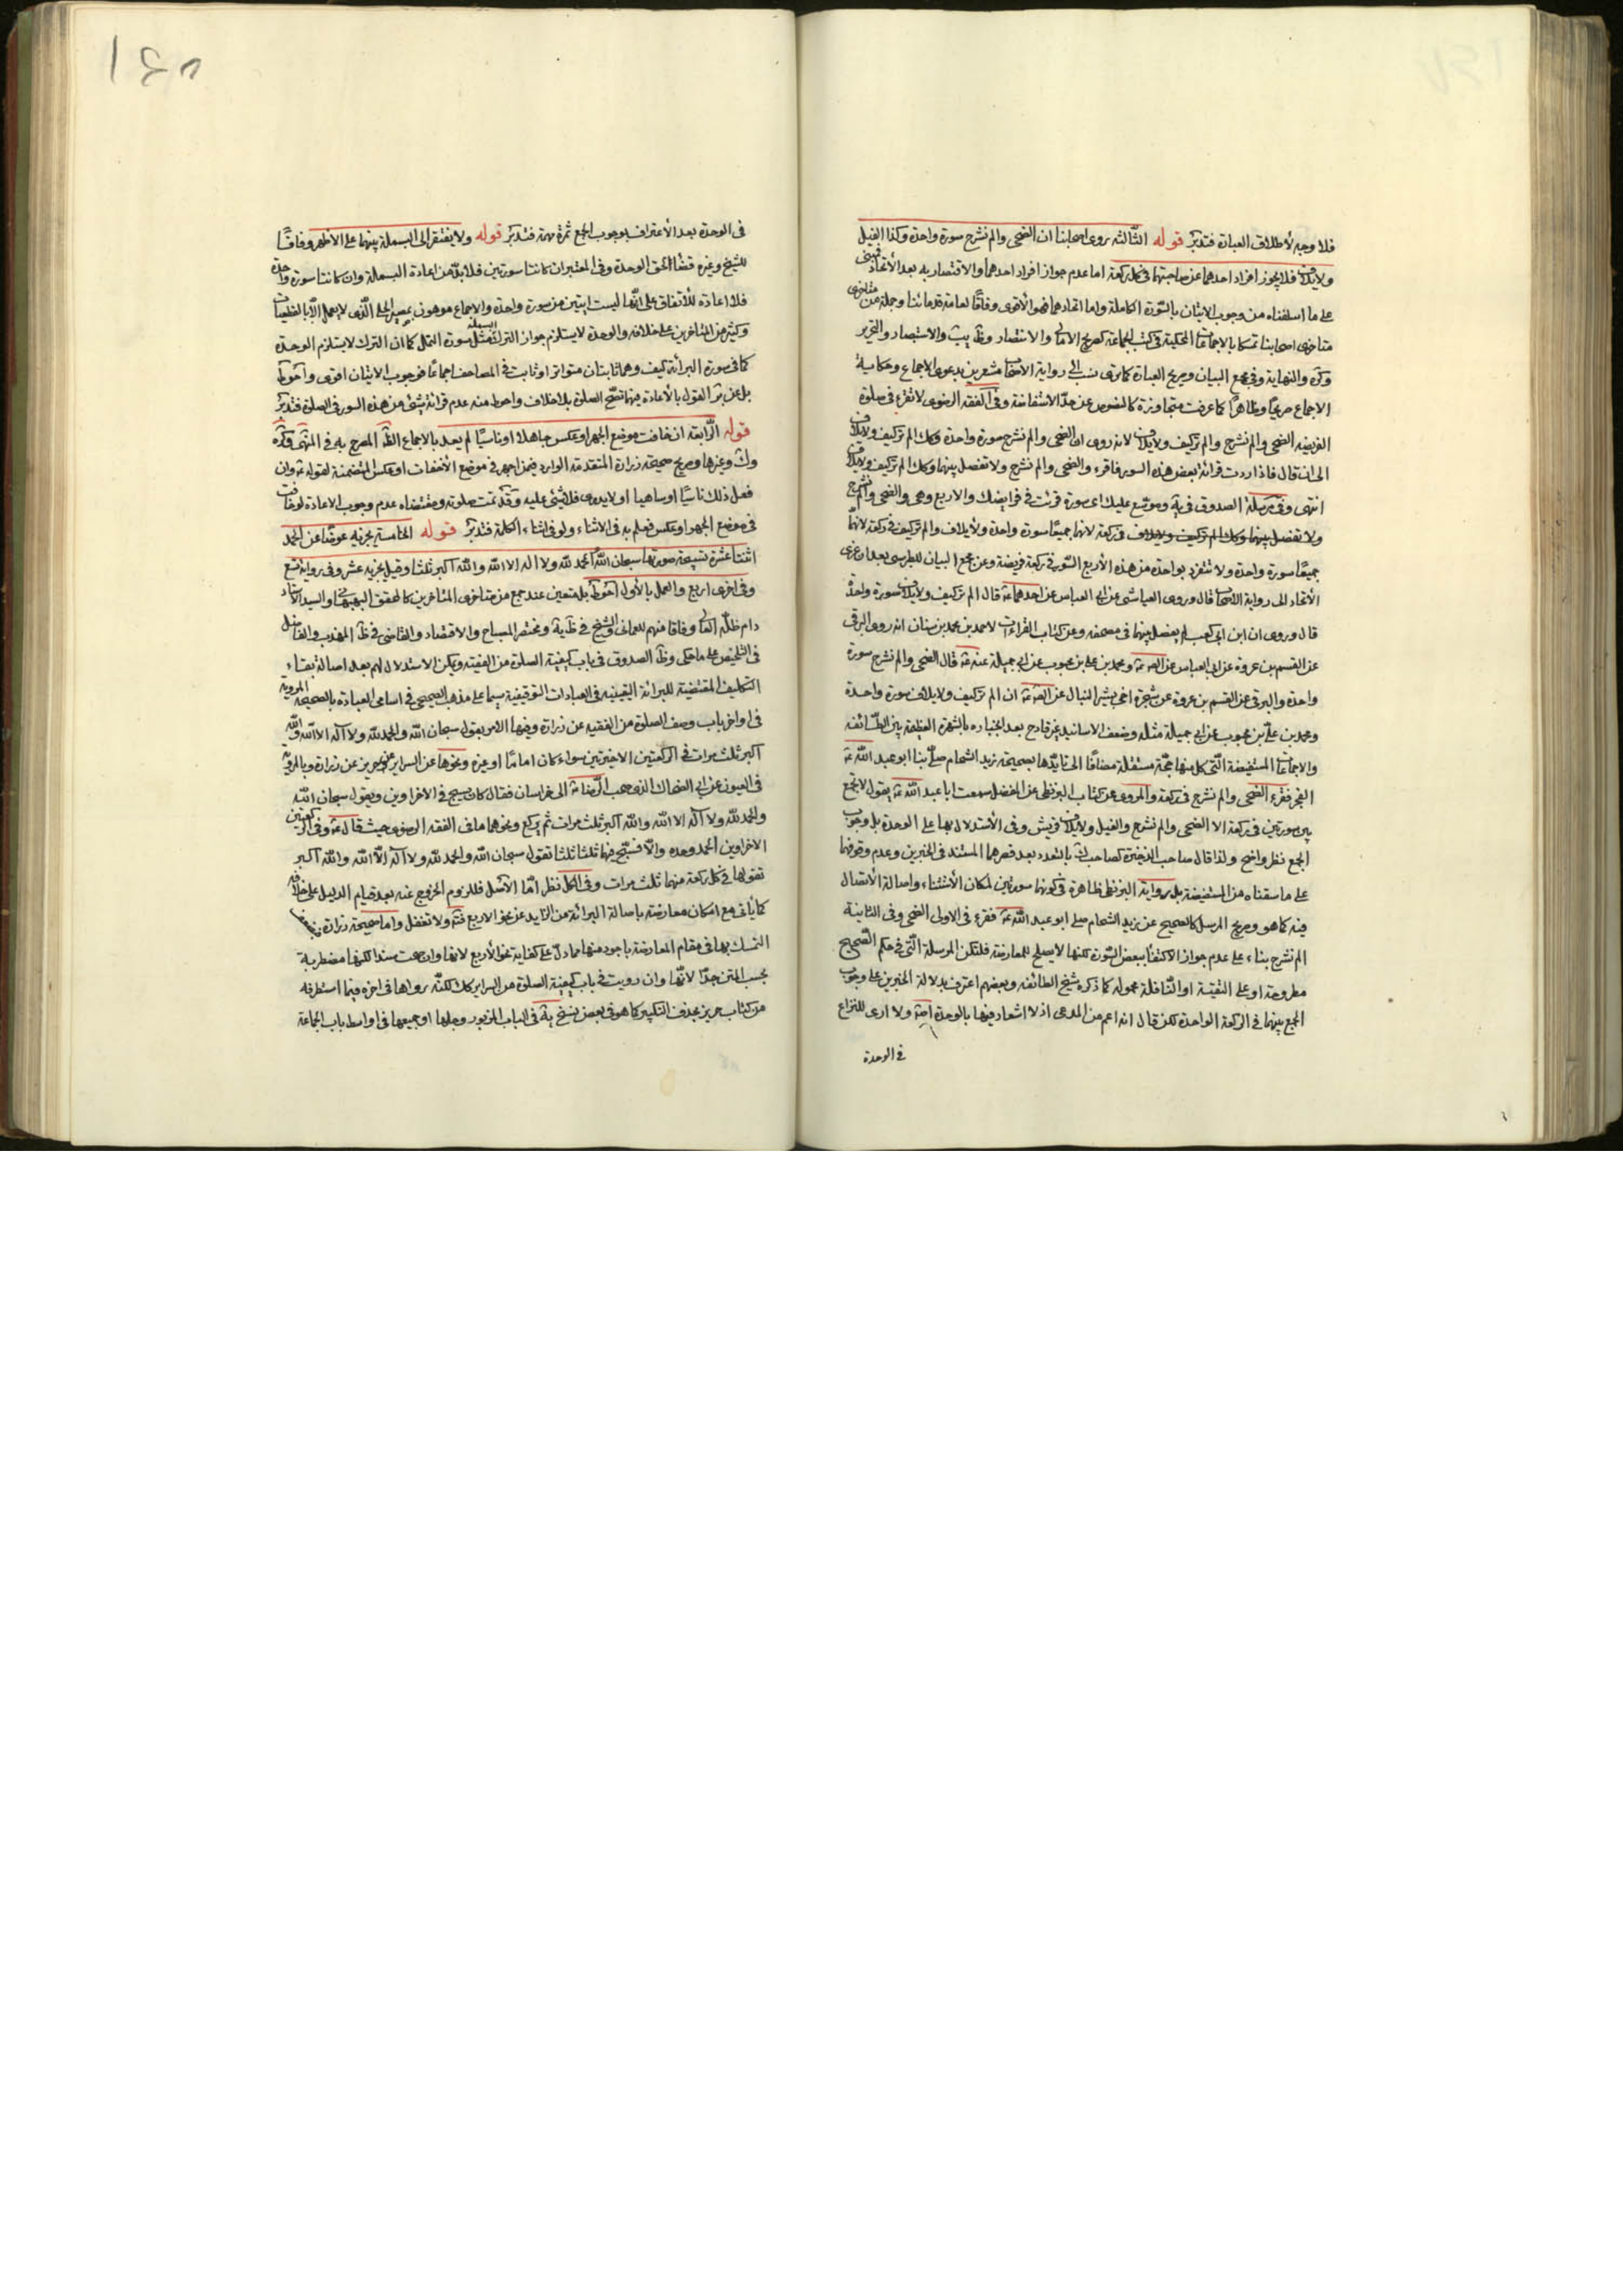 فلا وجه لأطلاق العبارة فتدبّر قوله الثّالثه روى اصحابنا ان الضحى والم نشرح سورة واحدة وكذا الفيل
ولايلاف فلا يجوز افراد احدهما عن صاحبتها فى كل ركعة اما عدم جواز افراد احدهما والاقتصار به بعد الأتحاد فمبنى
على ما اسلفناه من وجوب الاتيان بالسّورة الكاملة واما اتحادهما فهو الأقوى وفاقًا لعامة قدمائنا وجملة من متاخرى
متاخرى اصحابنا تمسكا بالاجماعات المحكية فى كتب الجماعة كصريح الامالى والانتصار وظ يب والاستبصار والتحرير
وكره والنهاية وفى مجمع البيان وصريح العبارة كما ترى نسب الى رواية الاصحاب مشعرين بدعوى الاجماع وحكاية
الاجماع صريحًا وظاهرًا كما عرفت متجاوزة كالنصوص عن حدّ الاستفاضة وفى الفقه الرضوى لا تقرء فى صلوة
الفريضه الضحى والم نشرح والم تركيف ولايلاف لانه روى ان الضحى والم نشرح سورة واحدة وكك الم تركيف ولايلاف
الى ان قال فاذا اردت قرائة بعض هذه السور فاقرء والضحى والم نشرح ولا تفصل بينهما وكك الم تركيف ولايلاف
انتهى وفى مرسلة الصدوق فى يه وموسّع عليك اى سورة قرئت فى فرايضك والاربع وهى والضحى والم نشرح
ولا تفصل بينهما وكك الم تركيف ولايلاف فى ركعة لانها جميعًا سورة واحدة ولأيلاف والم تركيف فى ركعة لانهما
جميعًا سورة واحدة ولا تنفرد بواحدة من هذه الأربع السّور فى ركعة فريضة وعن مجمع البيان للطبرسى بعد ان عزى
الأتحاد الى رواية الاصحاب قال وروى العياشى عن ابى العباس عن احدهما ع قال الم تركيف ولايلاف سورة واحدة
قال وروى ان ابن ابى كعب لم يفصل بينهما فى مصحفه وعن كتاب القراءات لاحمد بن محمد بن سنان انه روى البرقى
عن القسم بن عروة عن ابى العباس عن الص ع ومحمد بن على بن محبوب عن ابى جميلة عنه ع قال الضحى والم نشرح سورة
واحدة والبرقى عن القسم بن عروة عن شجرة اخى بشير النبال عن الص ع ان الم تركيف ولايلاف سورة واحدة
ومحمد بن علىّ بن محبوب عن ابى جميلة مثله وضعف الاسانيد غير قادح بعد انجباره بالشهرة العظيمة بين الطّائفه
والاجماعات المستفيضة الّتى كل منها حجّة مستقلة مضافًا الى تايّدها بصحيحة زيد الشحام صلّى بنا ابو عبد اللّه ع
الفجر فقرء الضحى والم نشرح فى ركعة والمروى عن كتاب البزنطى عن المفضل سمعت ابا عبد اللّه ع يقول لا تجمع
بين سورتين فى ركعة الا الضحى والم نشرح والفيل ولايلاف قريش وفى الأستدلال بها على الوحدة بل وجوب
الجمع نظر واضح ولذا قال صاحب الذخيرة كصاحب ك بالتعدد بعد قصرهما المستند فى الخبرين وعدم وقوفهما
على ما سقناه من المستفيضة بل رواية البزنطى ظاهرة فى كونها سورتين لمكان الأستثناء واصالة الأتصال
فيه كما هو وصريح المرسل كالصحيح عن زيد الشحام صلى ابو عبد اللّه ع فقرء فى الاولى الضحى وفى الثانية
الم نشرح بناء على عدم جواز الاكتفا ببعض السّورة لكنها لا يصلح للمعارضة فلتكن المرسلة الّتى فى حكم الصّحيح
مطروحة او على التقيّة او النّافلة محموله كما ذكره شيخ الطائفه وبعضهم اعترف بدلالة الخبرين على وجوب
الجمع بينهما فى الركعة الواحدة لكن قال انه اعم من المدعى اذ لا اشعار فيهما بالوحدة اصلا ولا ارى للنزاع
فى الوحدة
١٤٥
فى الوحدة بعد الأعتراف بوجوب الجمع ثمرة مهمة فتدبّر قوله ولا يفتقر الى البسملة بينهما على الاظهر وفاقًا
للشيخ وغيره قضاء لحق الوحدة وفى المعتبر ان كانتا سورتين فلا بدّ من اعادة البسملة وان كانتا سورة واحدة
فلا اعادة للأتفاق على انّها ليست ايتين من سورة واحدة والاجماع موهون بمصير الحلى الّذى لا يعمل الّا بالقطعيات
وكثير من المتاخرين على خلافه والوحدة لا يستلزم جواز الترك البسملة مثل سورة النمل كما ان الترك لا يستلزم الوحدة
كما فى سورة البرائة كيف وهما ثابتان متواترا وثابت فى المصاحف اجماعًا فوجوب الاتيان اقوى واحوط
بل عن التقول بالأعادة فيهما تصّح الصلوة بلا خلاف واحوط منه عدم قرائة شئ من هذه السور فى الصلوة فتدبّر
قوله الرّابعة ان خافت موضع الجهر او عكس جاهلا او ناسيًا لم يعد بالاجماع الظّ المصرح به فى المنتهى وكره
وك وغيرها وصريح صحيحة زرارة المتقدمة الوارد فيمن اجهر فى موضع الأخفات او عكس المتضمنة لقوله ع وان
فعل ذلك ناسيًا او ساهيا او لا يدرى فلا شئ عليه وقد تمت صلوته ومقتضاه عدم وجوب الاعادة لو خافت
فى موضع الجهر او عكس فعلم به فى الاثناء ولو فى اثناء الكلمة فتدبّر قوله الخامسة يجزيه عوضًا عن الحمد
اثنتا عشرة تسبيحة صورتها سبحان اللّه والحمد للّه ولا اله الا اللّه واللّه اكبر ثلثا وقيل يجزيه عشر وفى رواية تسع
وفى اخرى اربع والعمل بالأول احوط بل متعين عند جمع من متاخرى المتاخرين كالمحقق البهبهانى والسيد الاستاد
دام ظلّه العالى وفاقا منهم للعمانى والشيخ فى ظ ية ومختصر المصباح والاقتصاد والقاضى فى ظ المهذب والفاضل
فى التلخيص على ما حكى وظ الصدوق فى باب كيفية الصلوة من الفقيه ويمكن الاستدلال لهم بعد اصالة بقاء
التكليف المقتضية للبرائة اليقينيه فى العبادات التوقيفية سيما على مذهب الصحيحى فى اسامى العبادة بالصحيحة المروية
فى اواخر باب وصف الصلوة من الفقيه عن زرارة وفيها الامر بقول سبحان اللّه والحمد للّه ولا اله الا اللّه واللّه
اكبر ثلث مرات فى الركعتين الاخيرتين سواء كان امامًا او غيره ونحوها عن السراير عن حريز عن زرارة وبالمروية
فى العيون عن ابى الضحاك الذى صحب الرّضا ع الى خراسان فقال كان يسبح فى الاخراوين ويقول سبحان اللّه
والحمد للّه ولا اله الا اللّه واللّه اكبر ثلث مرات ثم يركع ونحوهما ما فى الفقه الرضوى حيث قال ع وفى الركعتين
الاخراوين الحمد وحده والّا فسبّح فيهما ثلثا ثلثا تقول سبحان اللّه والحمد للّه ولا اله الّا اللّه واللّه اكبر
تقولها فى كل ركعة منهما ثلث مرات وفى الكل نظر امّا الأصل فللزوم الخروج عنه بعد قيام الدليل على خلافه
كما يأتى مع امكان معارضته باصالة البرائة من الزايد عن نحو الاربع فتّه ولا تغفل واما صحيحة زرارة
التمسك بها فى مقام المعارضة باجود منها مما دلّ على كفاية نحو الأربع لانها وان صحت سندا لكنها مضطربة
بحسب المتن جدًا لانّها وان رويت فى باب كيفية الصلوة من السراير كك لكنّه رواها فى اخره فيما استطرفه
من كتاب حريز بحذف التكبير كما هو فى بعض نسخ يه فى الباب المزبور وجلها او جميعها فى اواسط باب الجماعة